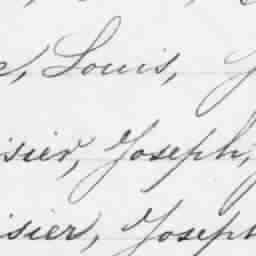 Louis,
isier, Joseph,
isier, Joseph